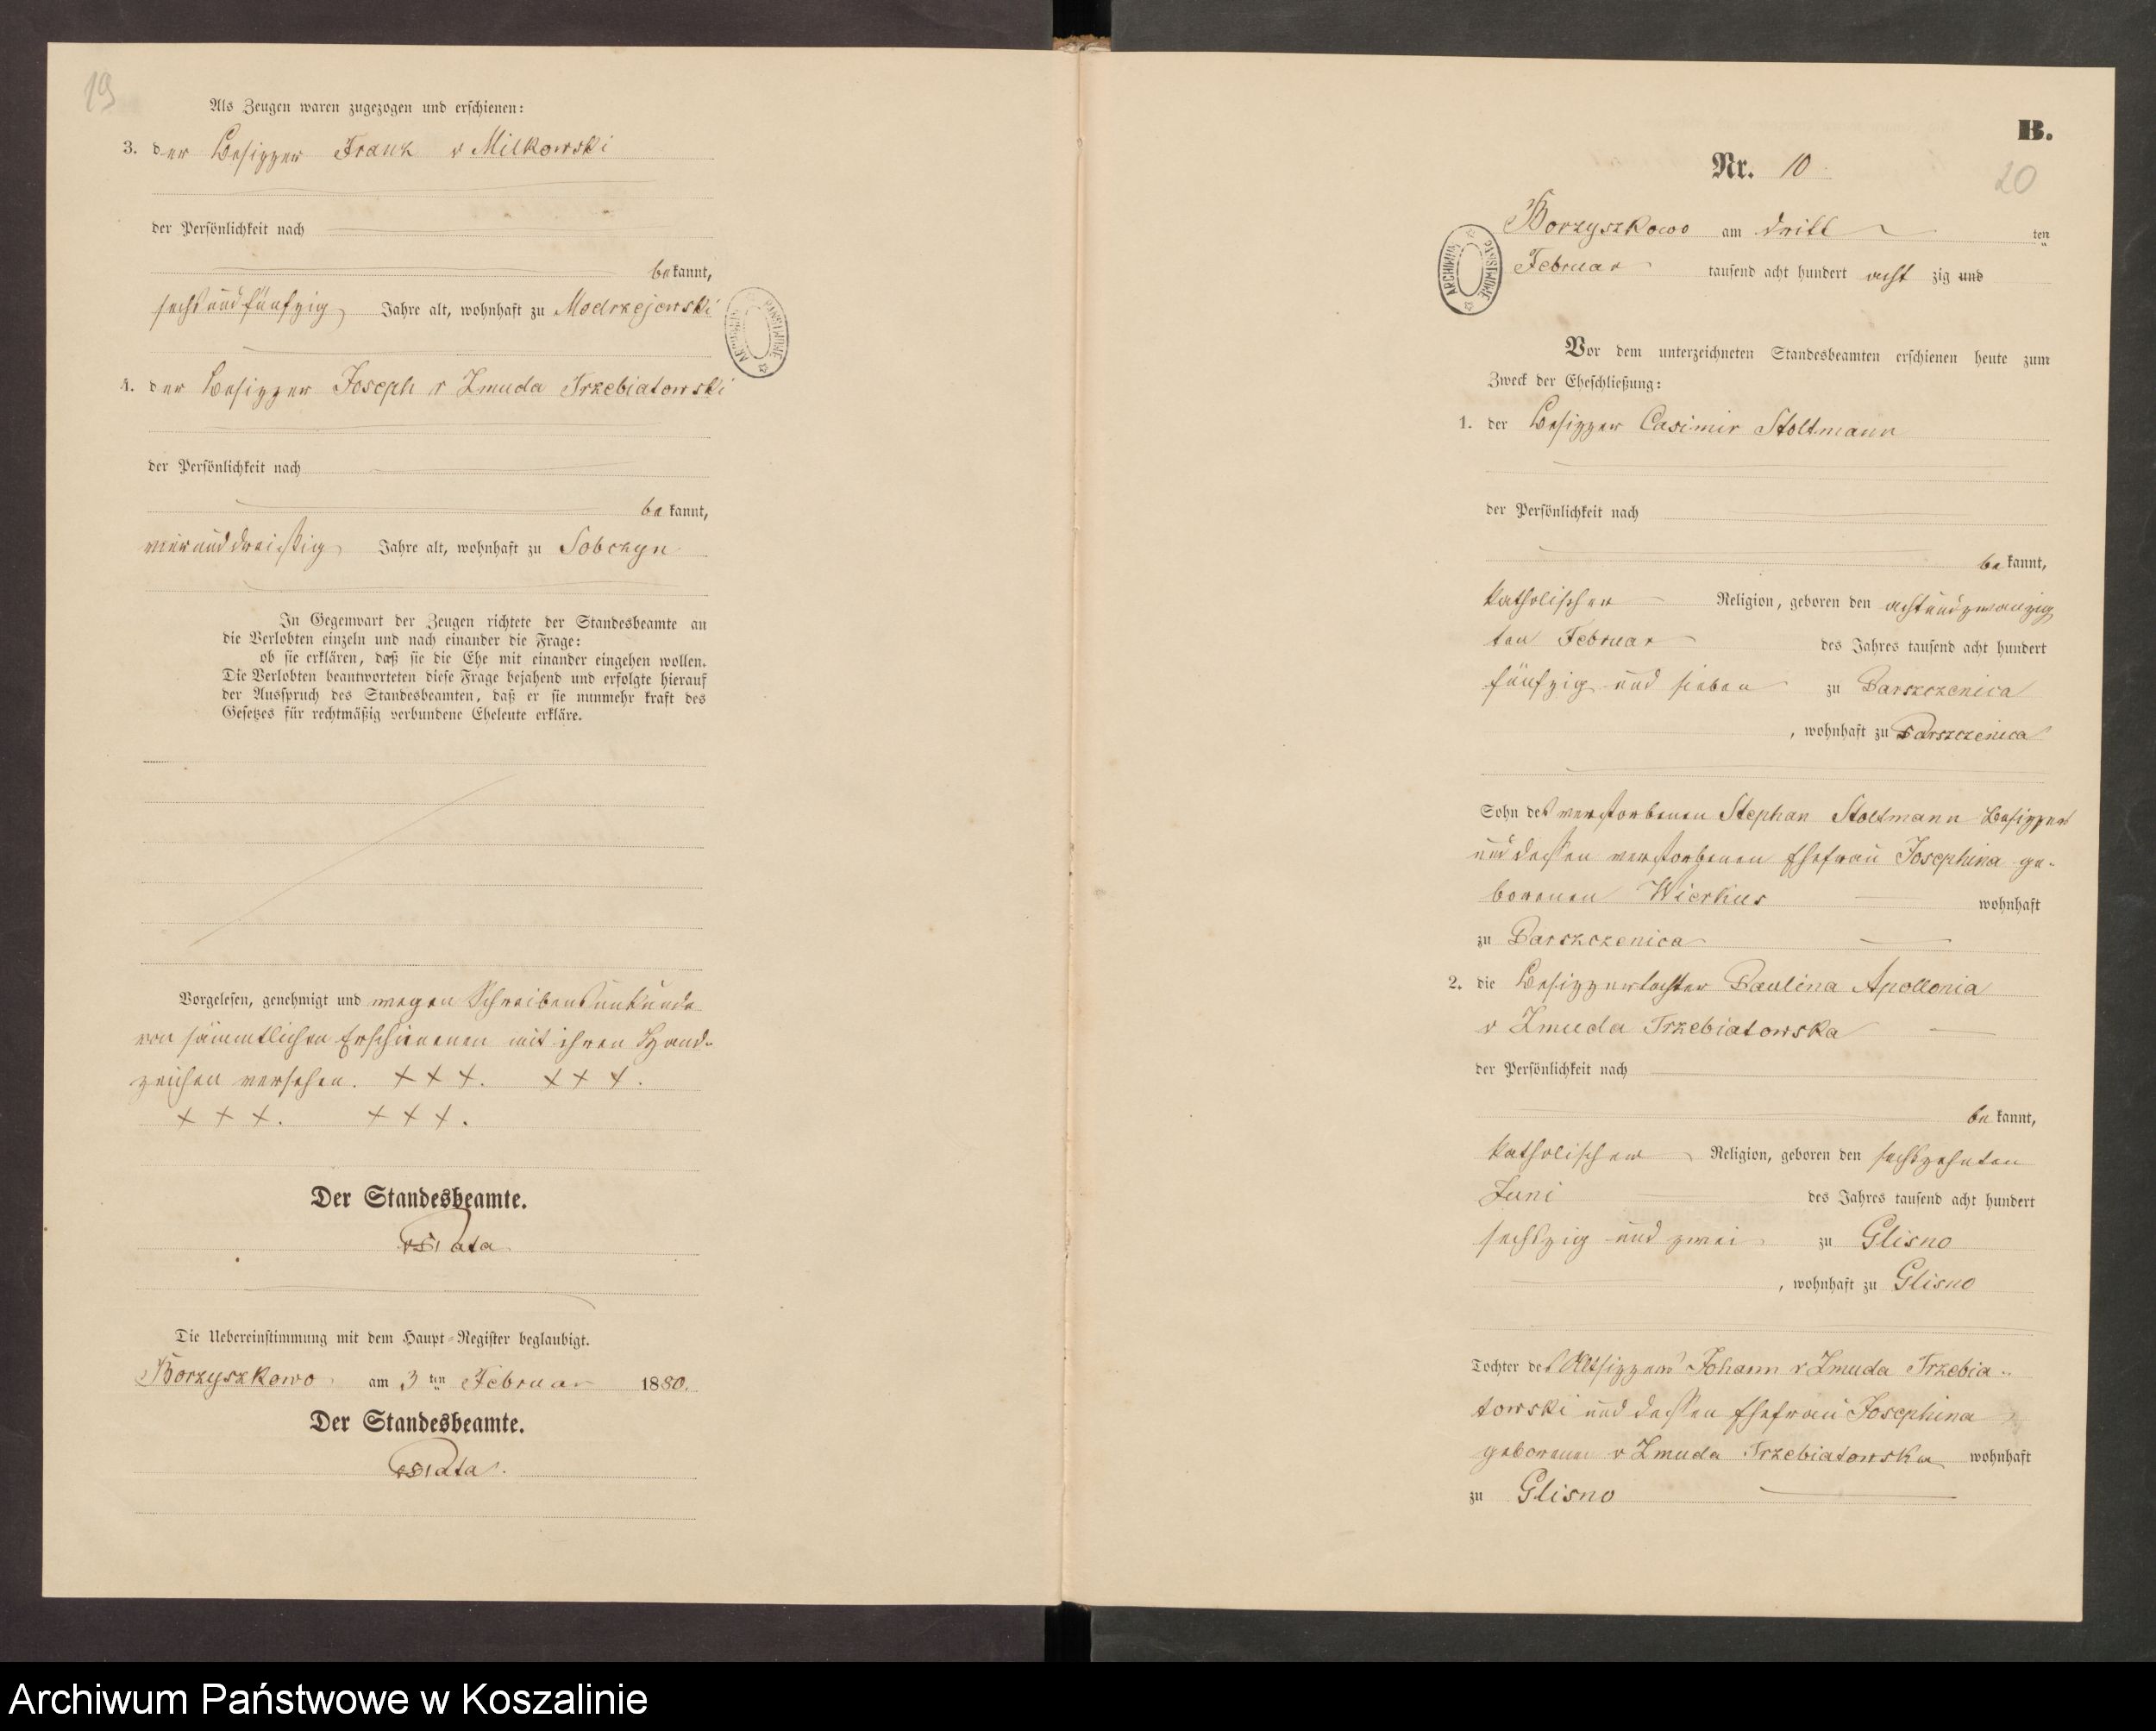 19
Als Zeugen waren zugezogen und erschienen:
3. der Besitzer Frank v Milkowski
der Persönlichkeit nach
bekannt,
sechsundfünfzig Jahre alt, wohnhaft zu Modrzejewski
4. der Besitzer Joseph v Zmuda Trzebiatowski
der Persönlichkeit nach
be kannt,
vierunddreißig Jahre alt, wohnhaft zu Sobczyn
In Gegenwart der Zeugen richtete der Standesbeamte an
die Verlobten einzeln und nach einander die Frage:
ob sie erklären, daß sie die Ehe mit einander eingehen wollen.
Die Verlobten beantworteten diese Frage bejahend und erfolgte hierauf
der Ausspruch des Standesbeamten, daß er sie nunmehr kraft des
Gesetzes für rechtmäßig verbundene Eheleute erkläre.
Vorgelesen, genehmigt und wegen Schreibensunkunde
von sämmtlichen Erschienenen mit ihren Hand-
zeichen versehen. + + +. + + +.
+ + +. + + +.
Der Standesbeamte.
Pata
Die Uebereinstimmung mit dem Haupt-Register beglaubigt.
Borzyszkowo am 3ten Februar 1880.
Der Standesbeamte.
Pata.
ARCHIWUM PAŃSTWOWE
B.
Nr. 10.
20
Borzyszkowo am dritt ten
Februar tausend acht hundert acht zig und
ARCHIWUM PAŃSTWOWE
Vor dem unterzeichneten Standesbeamten erschienen heute zum
Zweck der Eheschließung:
1. der Besitzer Casimir Stoltmann
der Persönlichkeit nach
be kannt,
katholischer Religion, geboren den achtundzwanzig
ten Februar des Jahres tausend acht hundert
fünfzig und sieben zu Parszczenica
, wohnhaft zu Parszczenica
Sohn des verstorbenen Stephan Stoltmann Besitzer
und dessen verstorbenen Ehefrau Josephina ge-
borenen Wierkus wohnhaft
zu Parszczenica
2. die Besitzertochter Paulina Apollonia
v Zmuda Trzebiatowska
der Persönlichkeit nach
be kannt,
katholischer Religion, geboren den sechszehnten
Juni des Jahres tausend acht hundert
sechszig und zwei zu Glisno
, wohnhaft zu Glisno
Tochter des Altsitzers Johann v Zmuda Trzebia-
towski und dessen Ehefrau Josephina
geborenen v Zmuda Trzebiatowska wohnhaft
zu Glisno
Archiwum Państwowe w Koszalinie